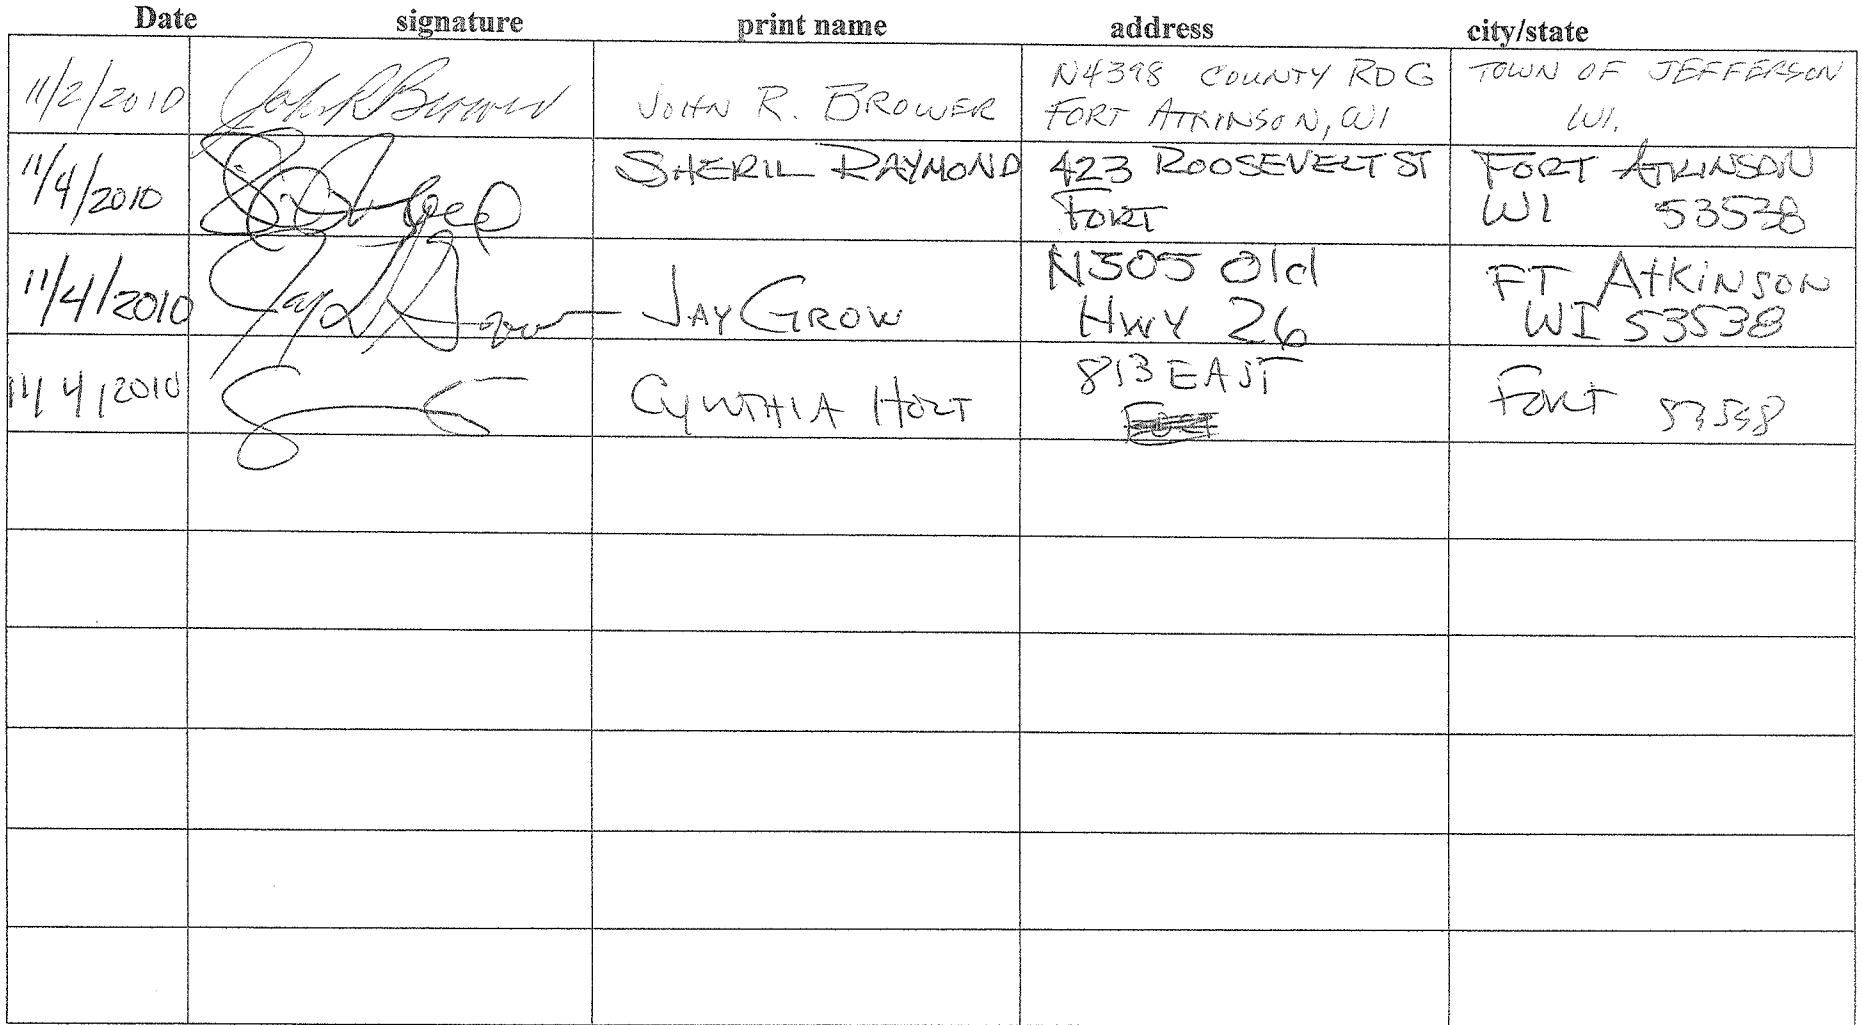 Date signature print name address city/state
11/2/2010 John R Brower JOHN R. BROWER N4398 COUNTY RD G TOWN OF JEFFERSON
FORT ATKINSON, WI WI.
11/4/2010 SHERIL RAYMOND 423 ROOSEVELT ST FORT ATKINSON
FORT WI 53538
11/4/2010 Jay Grow JAY GROW N305 Old FT ATKiNSON
HWY 26 WI 53538
11/4/2010 CYNTHIA HOLT 813 EAST FORT 53538